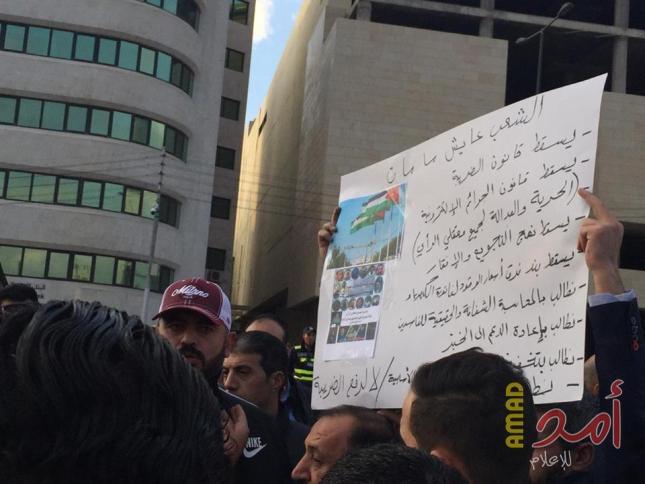 الشعب عايش ما مات
- يسقط قانون الضريبة
- يسقط قانون الجرائم الإلكترونية
(الحرية والعدالة لجميع معتقلي الرأي)
- يسقط نهج التجويع والإفقار
- يسقط بند فرق أسعار الوقود
- نطالب بالمحاسبة الشفافة والحقيقية للفاسدين
- نطالب بإعادة الدعم إلى الخبز
- نطالب
لا لرفع الضريبة
Milano
NIKE
AMAD
أمد
للإعلام